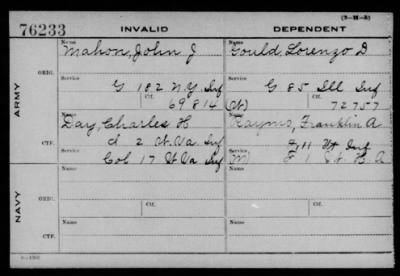 (3-M-8)
76233 INVALID DEPENDENT
ARMY
ORIG.
Name Mahon, John J
Service G 182 N.Y. Inf
Ctf. 69814
Name Gould, Lorenzo D
Service G 85 Ill Inf
Ctf. 72757
CTF.
Name Day, Charles H
Service d 2 W.Va. Inf
Col 17 W Va. Inf
Name Franklin A
Service F 11 Vt Inf
F 1 Vt H. A
NAVY
ORIG.
Name
Ctf.
Name
Ctf.
CTF.
Name
Name